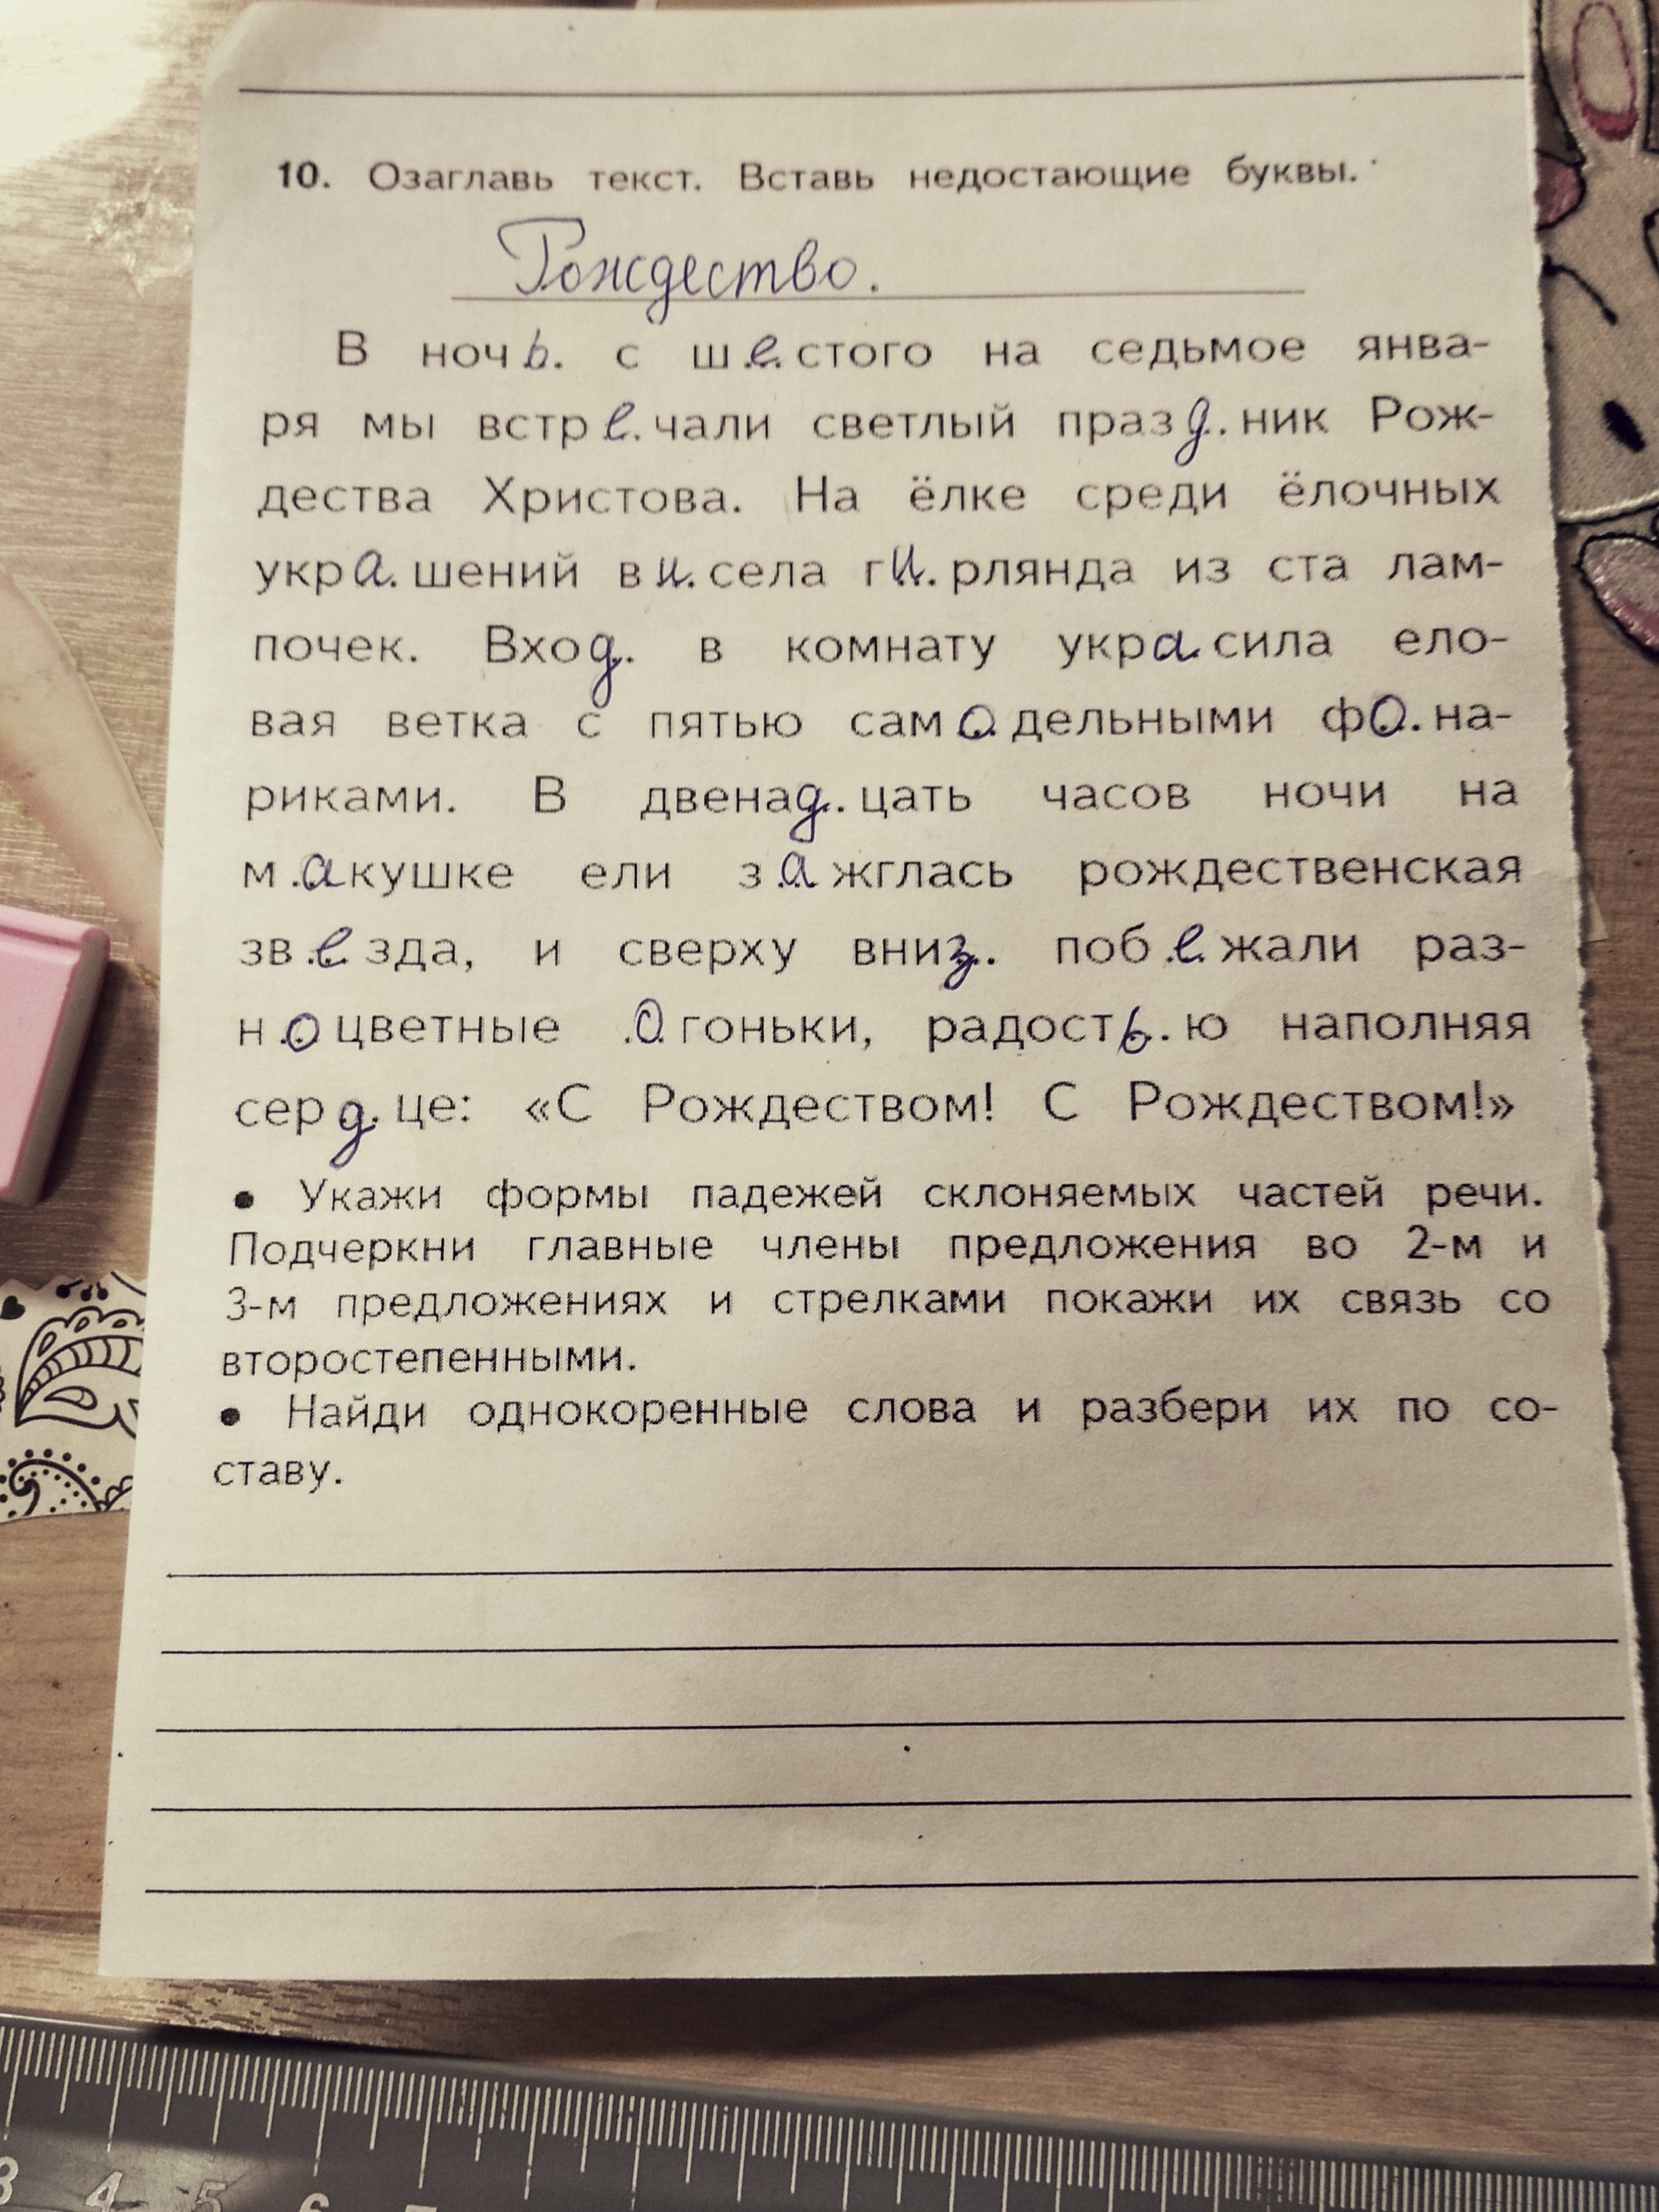 10. Озаглавь текст. Вставь недостающие буквы.
Рождество.
В ночь. с ш.е.стого на седьмое янва-
ря мы встре.чали светлый празд.ник Рож-
дества Христова. На ёлке среди ёлочных
укра.шений ви.села ги.рлянда из ста лам-
почек. Вход. в комнату укра.сила ело-
вая ветка с пятью само.дельными фо.на-
риками. В двенад..цать часов ночи на
м.акушке ели з.ажглась рождественская
зв.е.зда, и сверху вниз.. поб.е.жали раз-
н.оцветные .огоньки, радость.ю наполняя
серд.це: «С Рождеством! С Рождеством!»
• Укажи формы падежей склоняемых частей речи.
Подчеркни главные члены предложения во 2-м и
3-м предложениях и стрелками покажи их связь со
второстепенными.
• Найди однокоренные слова и разбери их по со-
ставу.
3 4 5 6 7